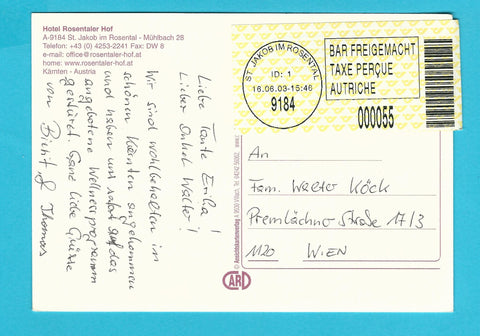 Hotel Rosentaler Hof
A-9184 St. Jakob im Rosental - Mühlbach 28
Telefon: +43 (0) 4253-2241 Fax: DW 8
e-mail: office@rosentaler-hof.at
home: www.rosentaler-hof.at
Kärnten - Austria
Liebe Tante Erika!
Lieber Onkel Walter!
Wir sind wohlbehalten im
schönen Kärnten angekommen
und haben uns sofort auf das
angebotene Wellnessprogramm
gestürzt. Ganz liebe Grüße
von Birgit & Thomas
ST. JAKOB IM ROSENTAL
ID: 1
16.06.03-15:46
9184
BAR FREIGEMACHT
TAXE PERÇUE
AUTRICHE
000055
An
Fam. Walter Köck
Premlechner Straße 17/3
1120 WIEN
CARD